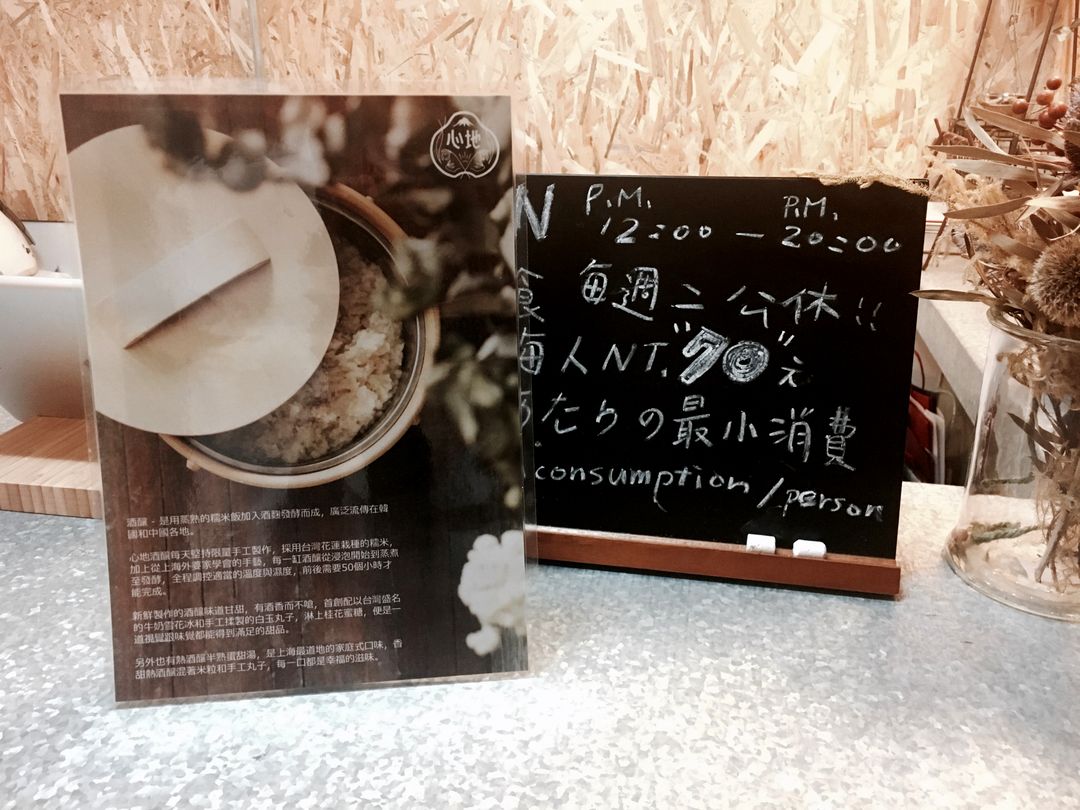 心地
酒釀 - 是用蒸熟的糯米飯加入酒麴發酵而成，廣泛流傳在韓
國和中國各地。
心地酒釀每天堅持限量手工製作，採用台灣花蓮栽種的糯米，
加上從上海外婆家學會的手藝，每一缸酒釀從浸泡開始到蒸煮
至發酵，全程調控適當的溫度與濕度，前後需要50個小時才
能完成。
新鮮製作的酒釀味道甘甜，有酒香而不嗆，首創配以台灣盛名
的牛奶雪花冰和手工揉製的白玉丸子，淋上桂花蜜糖，便是一
道視覺跟味覺都能得到滿足的甜品。
另外也有熱酒釀半熟蛋甜湯，是上海最道地的家庭式口味，香
甜熱酒釀混著米粒和手工丸子，每一口都是幸福的滋味。
N P.M. 12:00 — P.M. 20:00
食 每週二公休!!
每人NT."70"元
あたりの最小消費
consumption/person